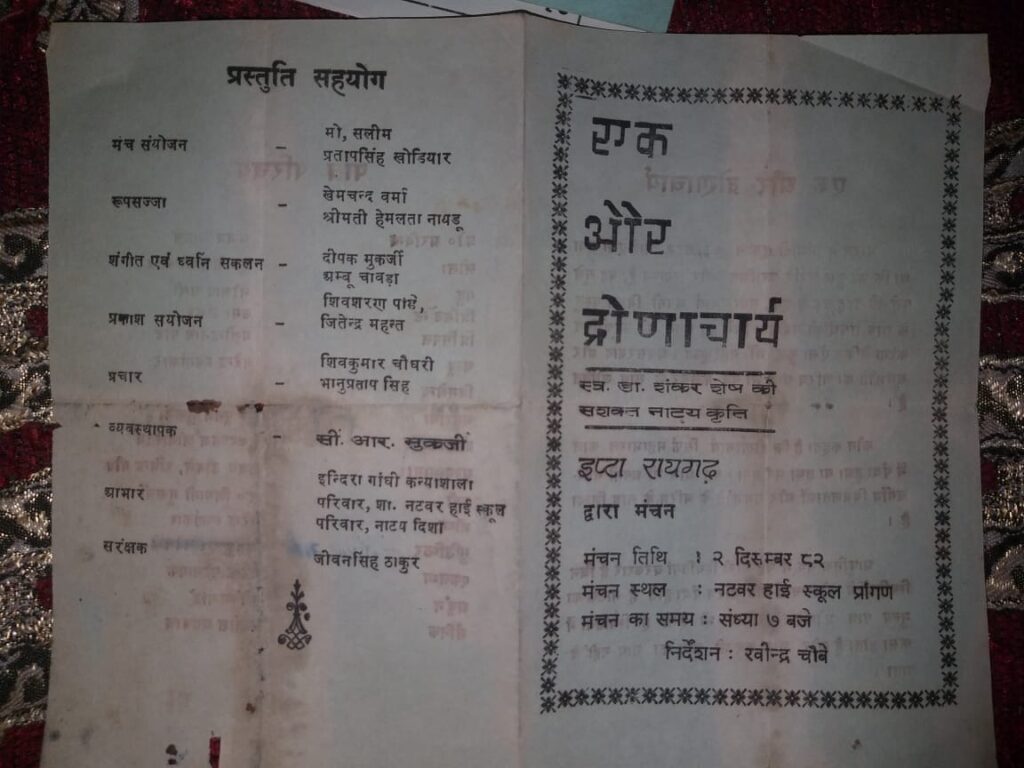 प्रस्तुति सहयोग
मंच संयोजन - मो, सलीम
प्रतापसिंह खोडियार
रूपसज्जा - खेमचन्द वर्मा
श्रीमती हेमलता नायडू
शंगीत एवं ध्वनि सकलन - दीपक मुकर्जी
अम्बू चावड़ा
शिवशरण पांडे,
प्रकाश सयोजन - जितेन्द्र महन्त
शिवकुमार चौधरी
प्रचार - भानुप्रताप सिह
व्यवस्थापक - सीं. आर. मुकर्जी
इन्दिरा गांधी कन्याशाला
आभार - परिवार, शा. नटवर हाई स्कूल
परिवार, नाटय दिशा
सरंक्षक जीवनसिंह ठाकुर
एक
और
द्रोणाचार्य
स्व. डा. शंकर शेष की
सशक्त नाट्य कृति
इप्टा रायगढ़
द्वारा मंचन
मंचन तिथि : २ दिसम्बर ८२
मंचन स्थल नटवर हाई स्कूल प्रांगण
मंचन का समय : संध्या ७ बजे
निर्देशन : रवीन्द्र चौबे